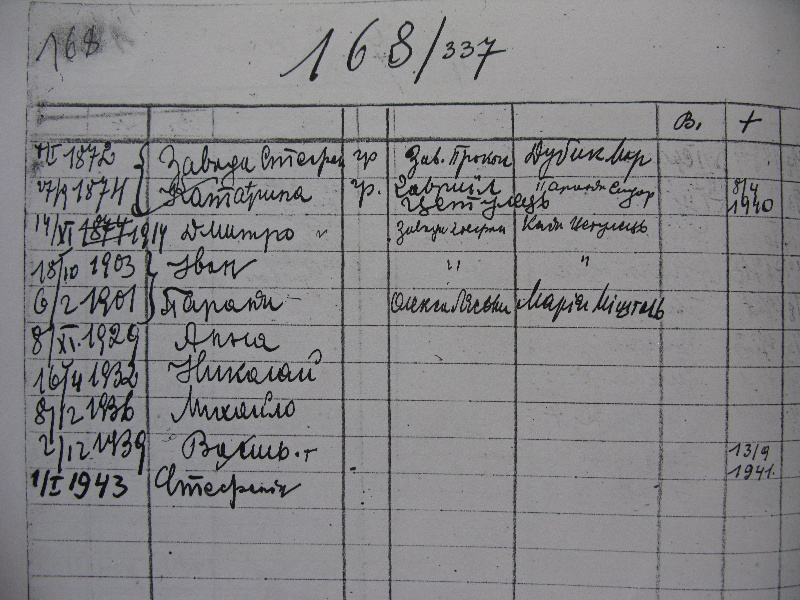 168
168/337
В. +
1872 Завада Стефан гр Зав. Прокоп Дубик Мар
27/9 1874 Катарина гр. Гавриїл Параня Сидор 8/4
Цетулець 1940
14/XI 1877 1914 Дмитро " Завада Стефан Кат Цетулець
18/10 1903 Иван " "
6/2 1901 Параня Олекса Марія
8/XI. 1929 Анна
16/4 1932 Николай
8/2 1936 Михайло
2/12 1939 13/9
1941.
1/I 1943 Стефанія